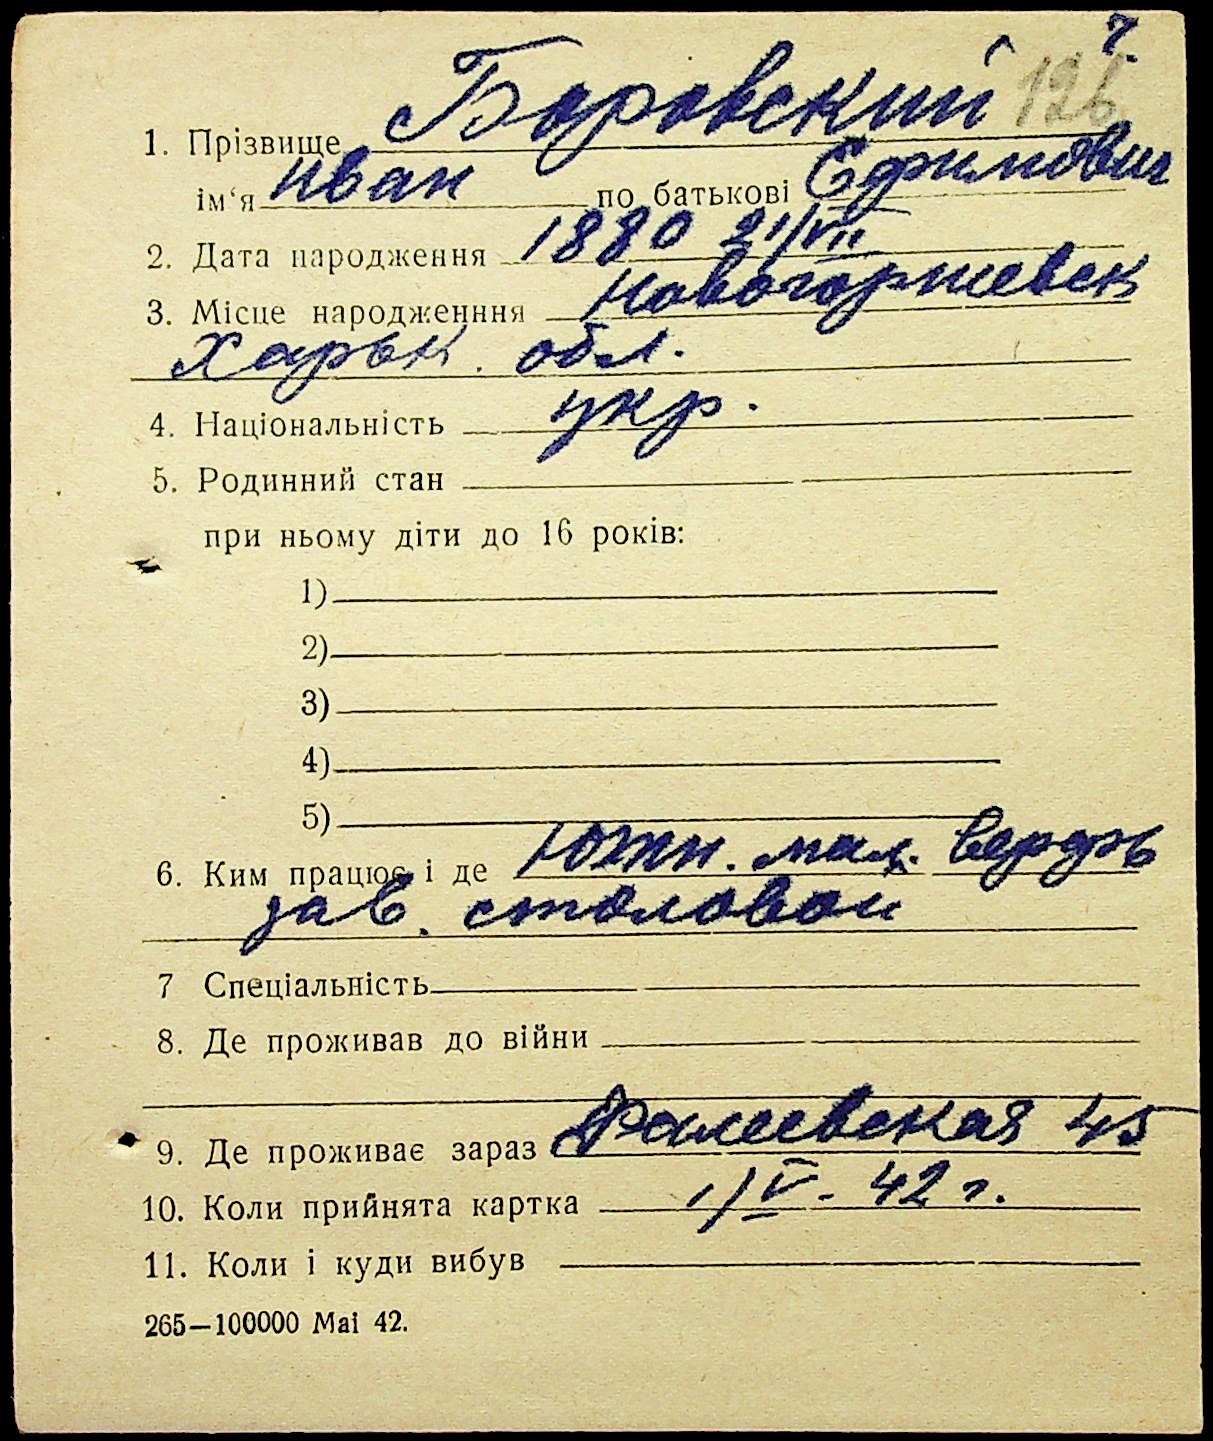 ч.
126
1. Прізвище Боровский
ім‘я Иван по батькові Ефимович
2. Дата народження 1880 21/VII
3. Місце народженння Новогоржевск
Харьк. обл.
4. Національність укр.
5. Родинний стан
при ньому діти до 16 років:
1)
2)
3)
4)
5)
6. Ким працює і де Южн.
зав. столовой
7 Спеціальність
8. Де проживав до війни
9. Де проживає зараз Фалеевская 45
10. Коли прийнята картка 1/V - 42 г.
11. Коли і куди вибув
265—100000 Маі 42.